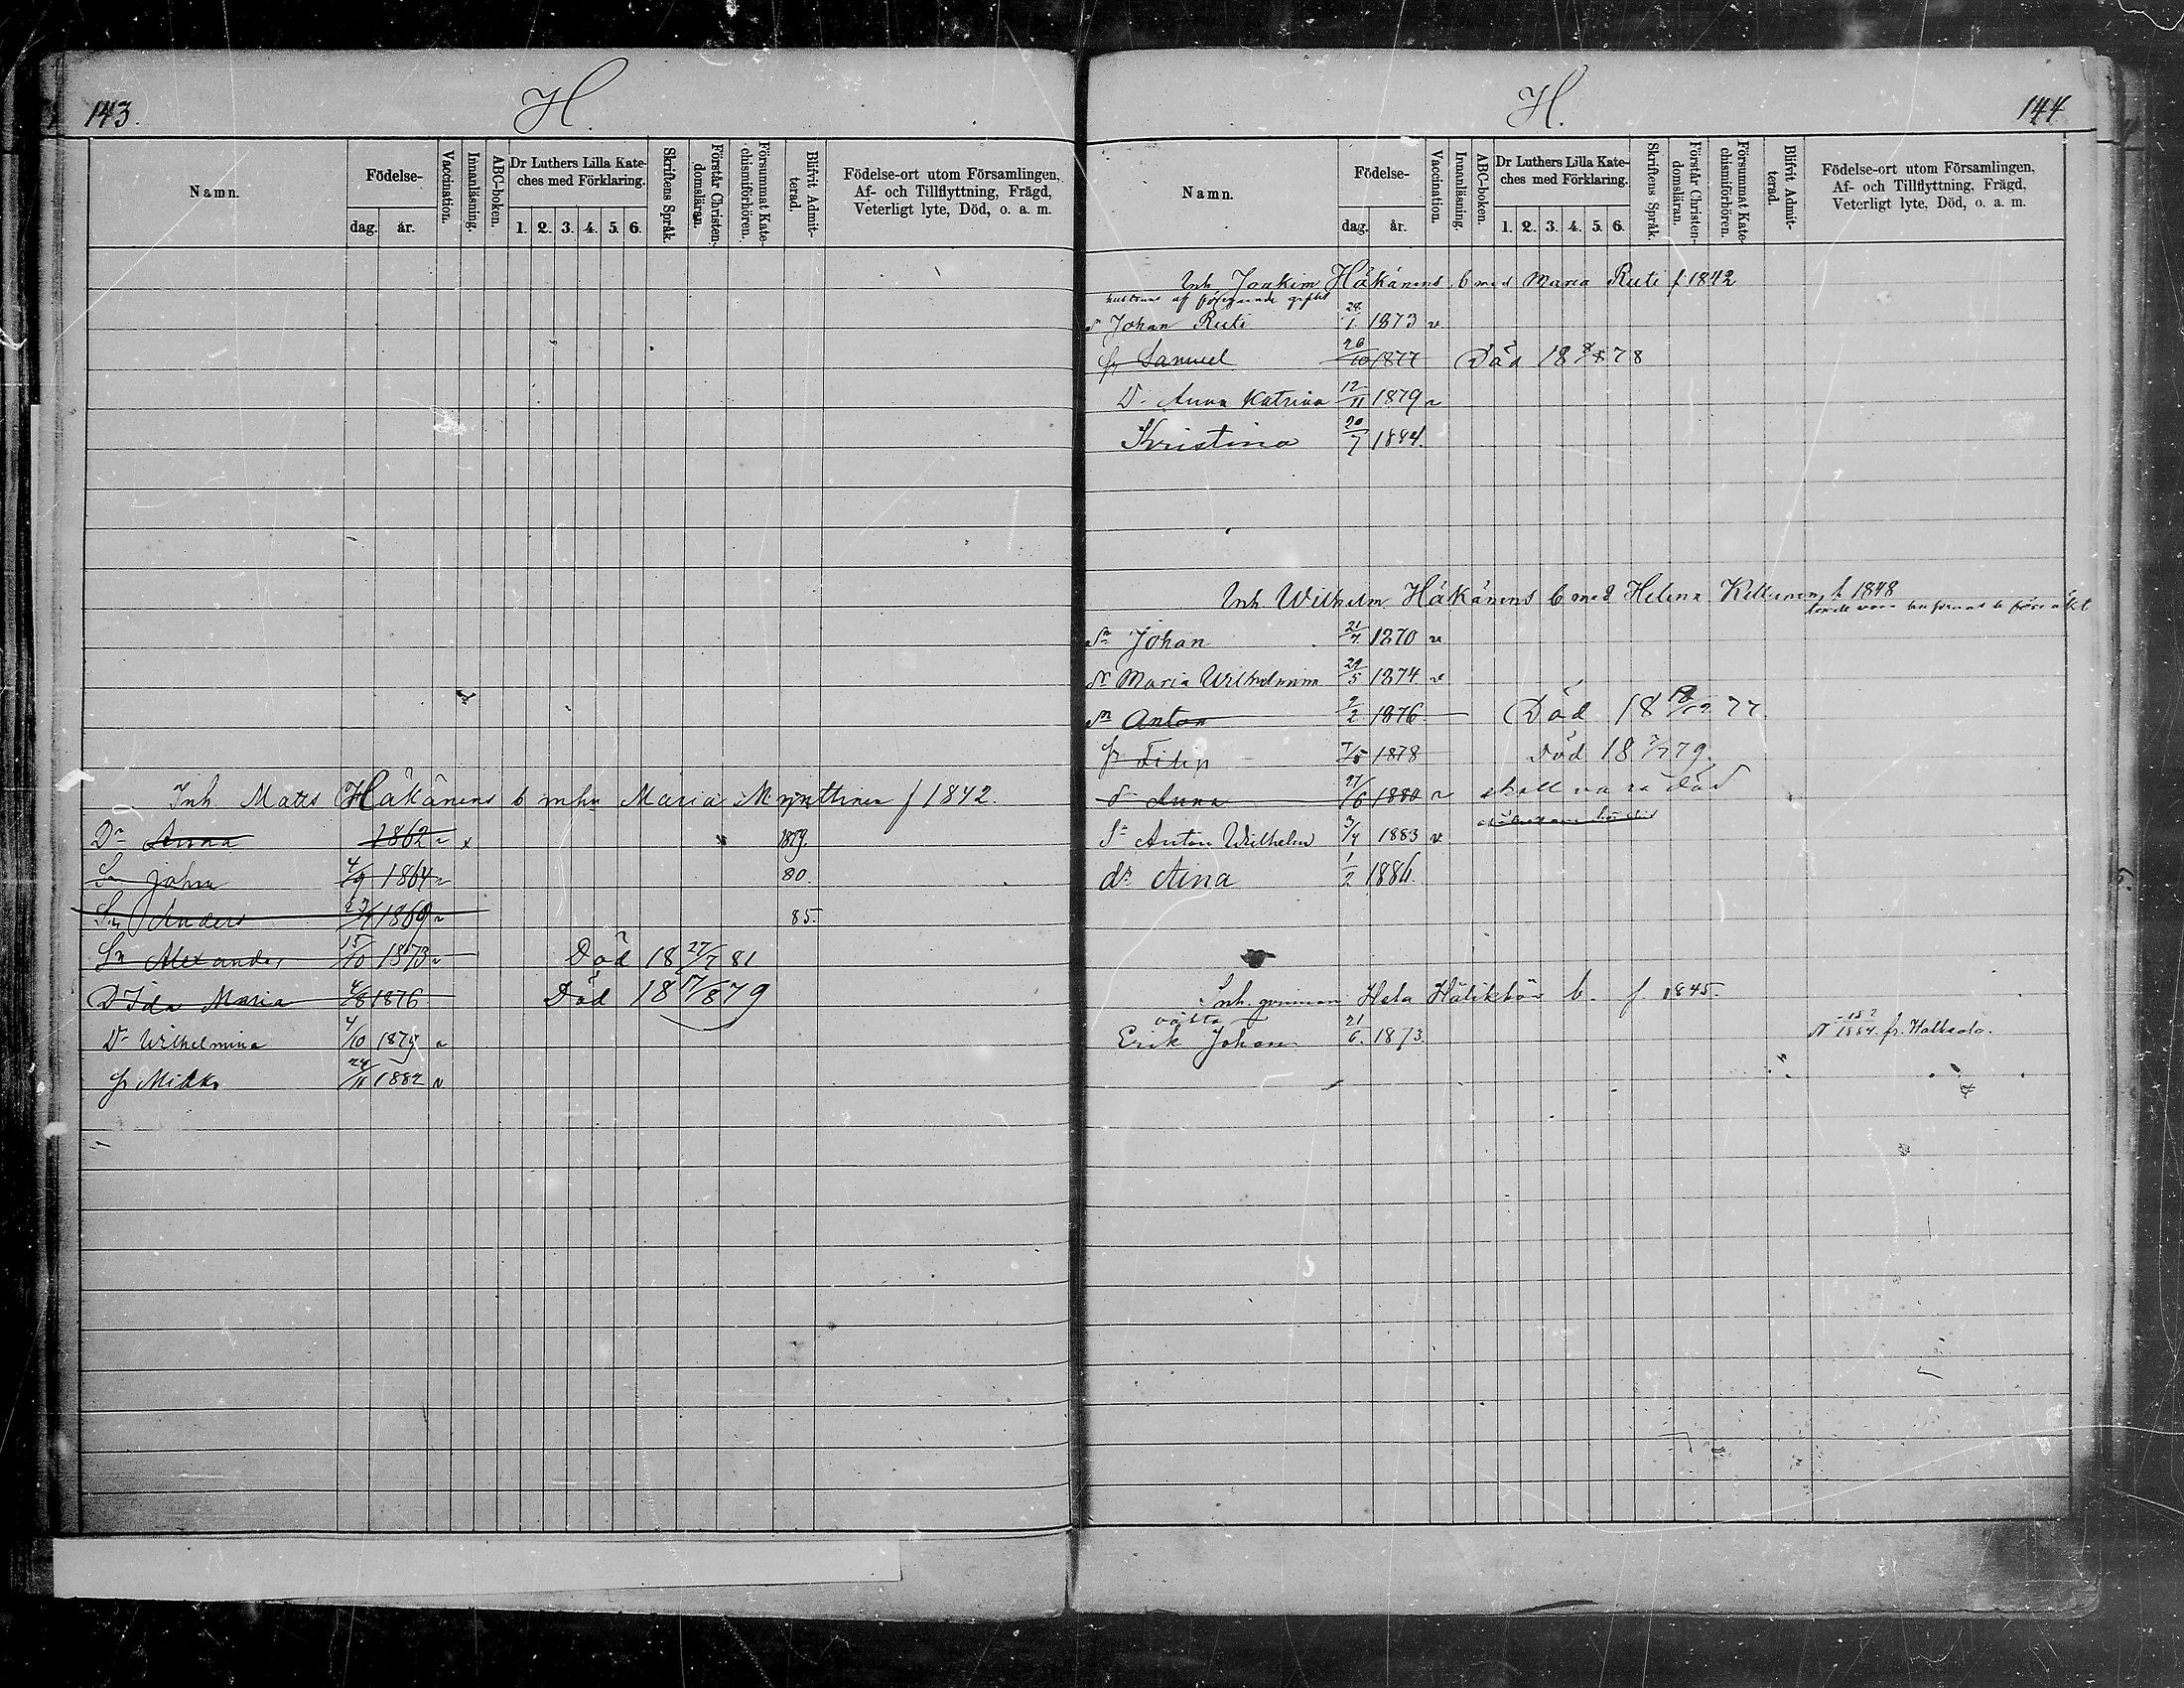 143.
H.
Namn.
Födelse-
dag. år.
Vaccination.
Innanläsning.
ABC-boken.
Dr Luthers Lilla Kate-
ches med Förklaring.
1. 2. 3. 4. 5. 6.
Skriftens Språk.
Förstår Christen-
domsläran.
Försummat Kate-
chismiförhören.
Blifvit Admit-
terad.
Födelse-ort utom Församlingen,
Af- och Tillflyttning, Frägd,
Veterligt lyte, Död, o. a. m.
Inh. Matts Häkänens b mhu Maria Mynttinen f 1842.
Dr Anna 1862 v x 1879.
Sn Johan 4/9 1864 v 80.
Sn Anders 1869 v 85.
Sn Alexander 15/10 1873 v Död 18 27/7 81
Dr Ida Maria 4/8 1876 Död 18 17/8 79
Dr Wilhelmina 4/10 1879 v
Mikko 24/11 1882 v
H.
144
Namn.
Födelse-
dag. år.
Vaccination.
Innanläsning.
ABC-boken.
Dr Luthers Lilla Kate-
ches med Förklaring.
1. 2. 3. 4. 5. 6.
Skriftens Språk.
Förstår Christen-
domsläran.
Försummat Kate-
chismiförhören.
Blifvit Admit-
terad.
Födelse-ort utom Församlingen,
Af- och Tillflyttning, Frägd,
Veterligt lyte, Död, o. a. m.
Inh Joakim Häkänens b med Maria Ruti f 1842
hustrus af föregående gifte
Sn Johan Ruti 29/1. 1873 v
Samuel 26/10 1877 Död 18 8/8 78
D. Anna Katrina 12/11 1879 v
Kristina 20/7 1884.
Inh Wilhelm Häkänens b med Helena f. 1848
Sn Johan 21/7 1870 v
Dr Maria Wilhelmina 29/5 1874 v
Sn Anton 9/2 1876 Död 18 77
Filip 7/5 1878 Död 18 7/7 79.
Dr Anna 27/6 1880 v skall vara död
Sn Anton Wilhelm 3/4 1883 v
dr Aina 1/2 1886.
Inh. b. f 1845.
Erik Johan 21/6. 1873 1884. fr.